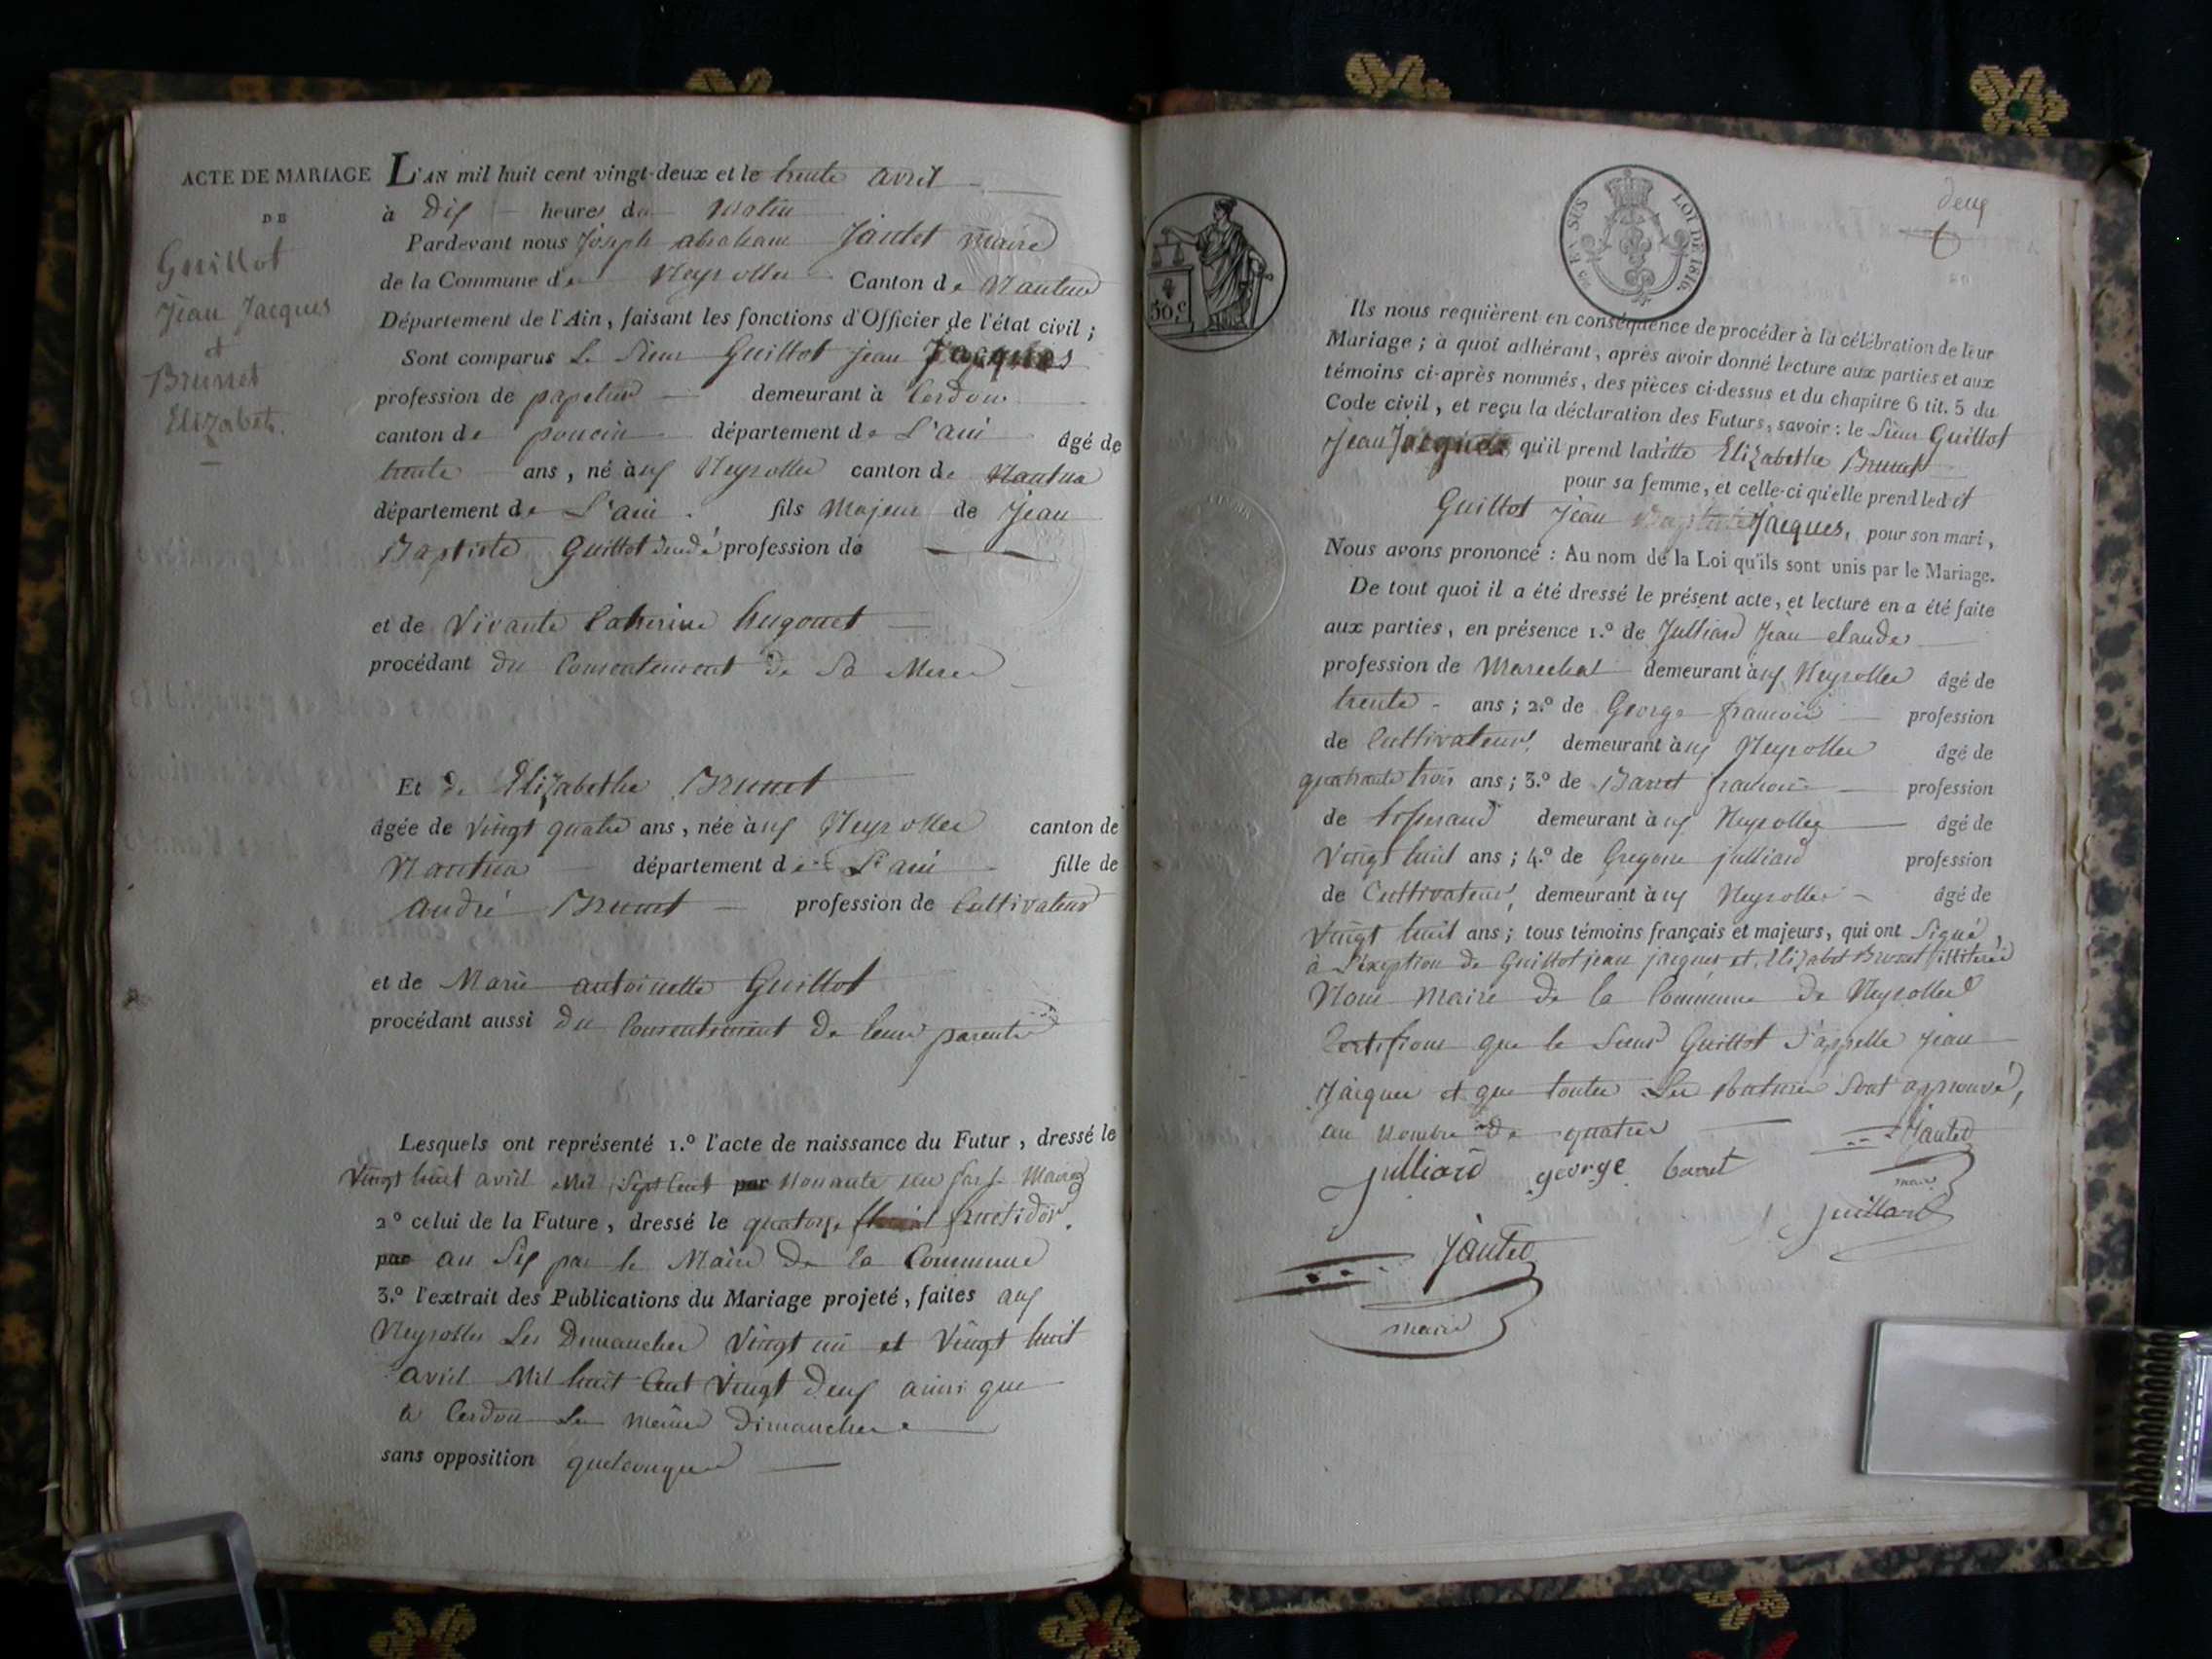 ACTE DE MARIAGE
DE
Guillot
Jean Jacques
et
Brunet
Elizabeth.
L'AN mil huit cent vingt-deux et le trente avril
à Dix heures du Matin
Pardevant nous Joseph abraham Jantet maire
de la Commune de Neyrolles Canton de Nantua
Département de l'Ain, faisant les fonctions d'Officier de l'état civil ;
Sont comparus Le Sieur Guillot Jean Jacques
profession de papetier demeurant à Cerdon
canton de poncin département de L'ain âgé de
trente ans, né aux Neyrolles canton de Nantua
département de L'ain. fils Majeur de Jean
Baptiste Guillot profession de
et de Vivante Catherine hugonet
procédant du Consentement de Sa Mere
Et de Elizabethe Brunet
âgée de Vingt quatre ans, née aux Neyrolles canton de
Nantua département de L'ain fille de
André Brunet profession de Cultivateur
et de Marie antoinette Guillot
procédant aussi du Consentement de leurs parents
Lesquels ont représenté 1.º l'acte de naissance du Futur, dressé le
Vingt huit avril Mil Sept Cent par Nonante un par le Maire
2º celui de la Future, dressé le quatorze fructidor.
par an Six par le Maire de la Commune
3.º l'extrait des Publications du Mariage projeté, faites aux
Neyrolles Les Dimanches Vingt un et Vingt huit
avril Mil huit Cent Vingt deux ainsi que
à Cerdon Les mêmes Dimanches
sans opposition quelconque
50.c
EN SUS
LOI DE 1816.
deux
Ils nous requièrent en conséquence de procéder à la célébration de leur
Mariage ; à quoi adhérant, après avoir donné lecture aux parties et aux
témoins ci-après nommés, des pièces ci-dessus et du chapitre 6 tit. 5 du
Code civil, et reçu la déclaration des Futurs, savoir : le Sieur Guillot
Jean Jacques qu'il prend ladite Elizabethe Brunet
pour sa femme, et celle-ci qu'elle prend led it
Guillot Jean Jacques, pour son mari,
Nous avons prononcé : Au nom de la Loi qu'ils sont unis par le Mariage.
De tout quoi il a été dressé le présent acte, et lecture en a été faite
aux parties, en présence 1.º de Julliard Jean claude
profession de Marechal demeurant aux Neyrolles âgé de
trente ans ; 2.º de George francois profession
de Cultivateur, demeurant aux Neyrolles âgé de
quatrante trois ans ; 3.º de Barret francois profession
de demeurant aux Neyrolles âgé de
Vingt huit ans ; 4.º de Gregoire julliard profession
de Cultivateur, demeurant aux Neyrolles âgé de
Vingt huit ans ; tous témoins français et majeurs, qui ont Signé,
à L'exeption de Guillot jean jacques et Elizabet Brunet illiterés
Nous Maire de la Commune de Neyrolles
Certifions que le Sieur Guillot S'appelle Jean
Jacques et que toutes Les Ratures Sont aprouvé,
au Nombre de quatres
Jantet
maire
julliard george barret
juillard
Jantet
maire